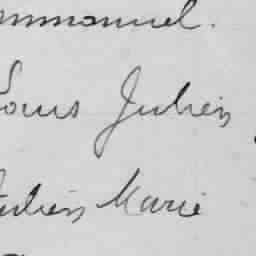 mmanuel.
Louis Julien
Julien Marie